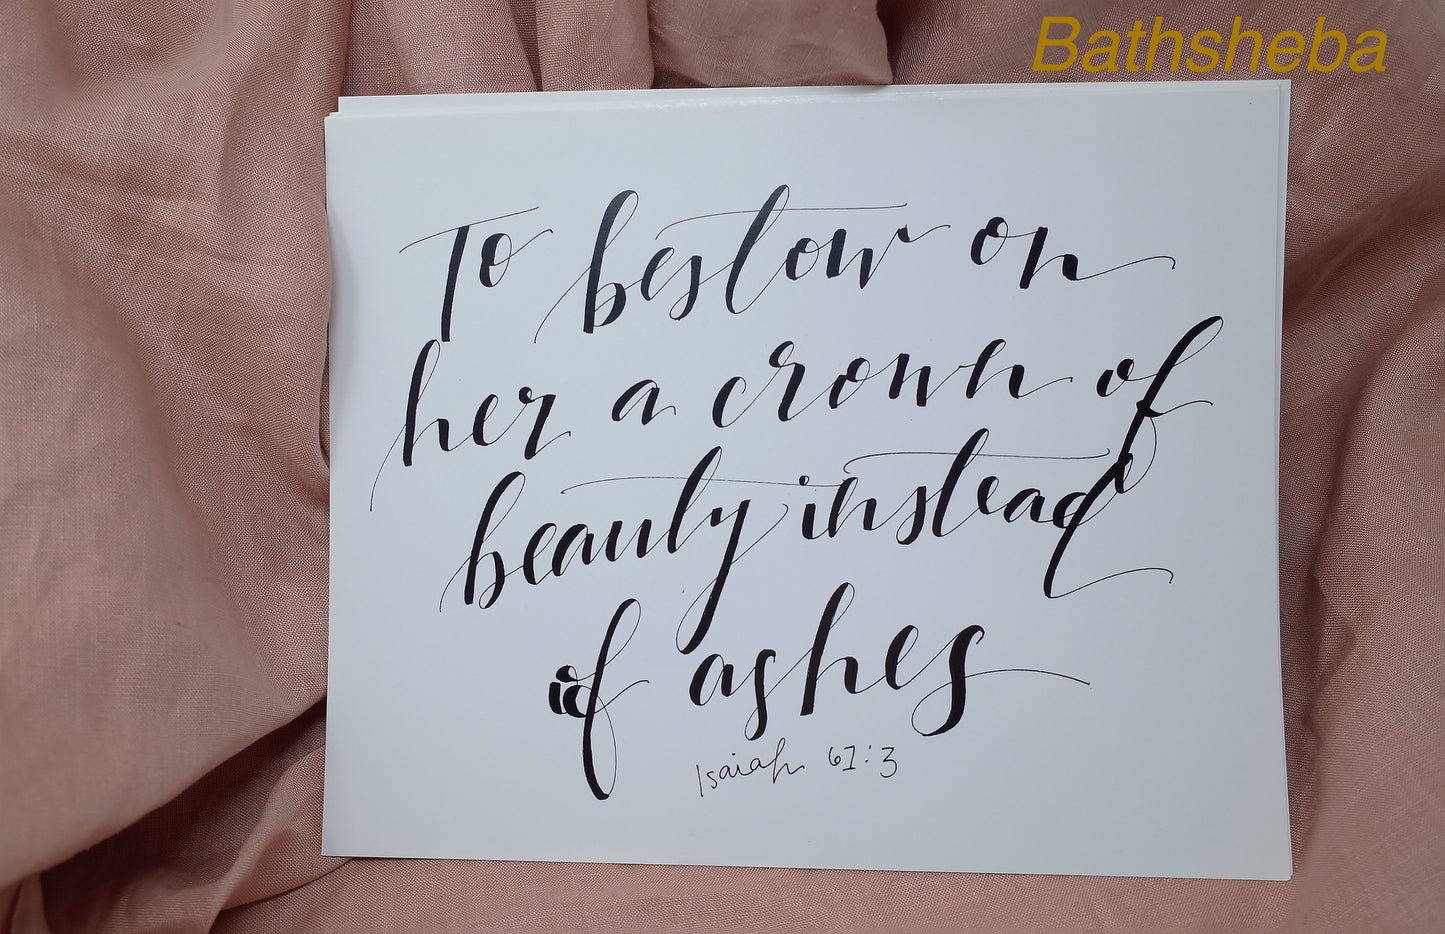 Bathsheba
To bestow on
her a crown of
beauty instead
of ashes
Isaiah 61:3